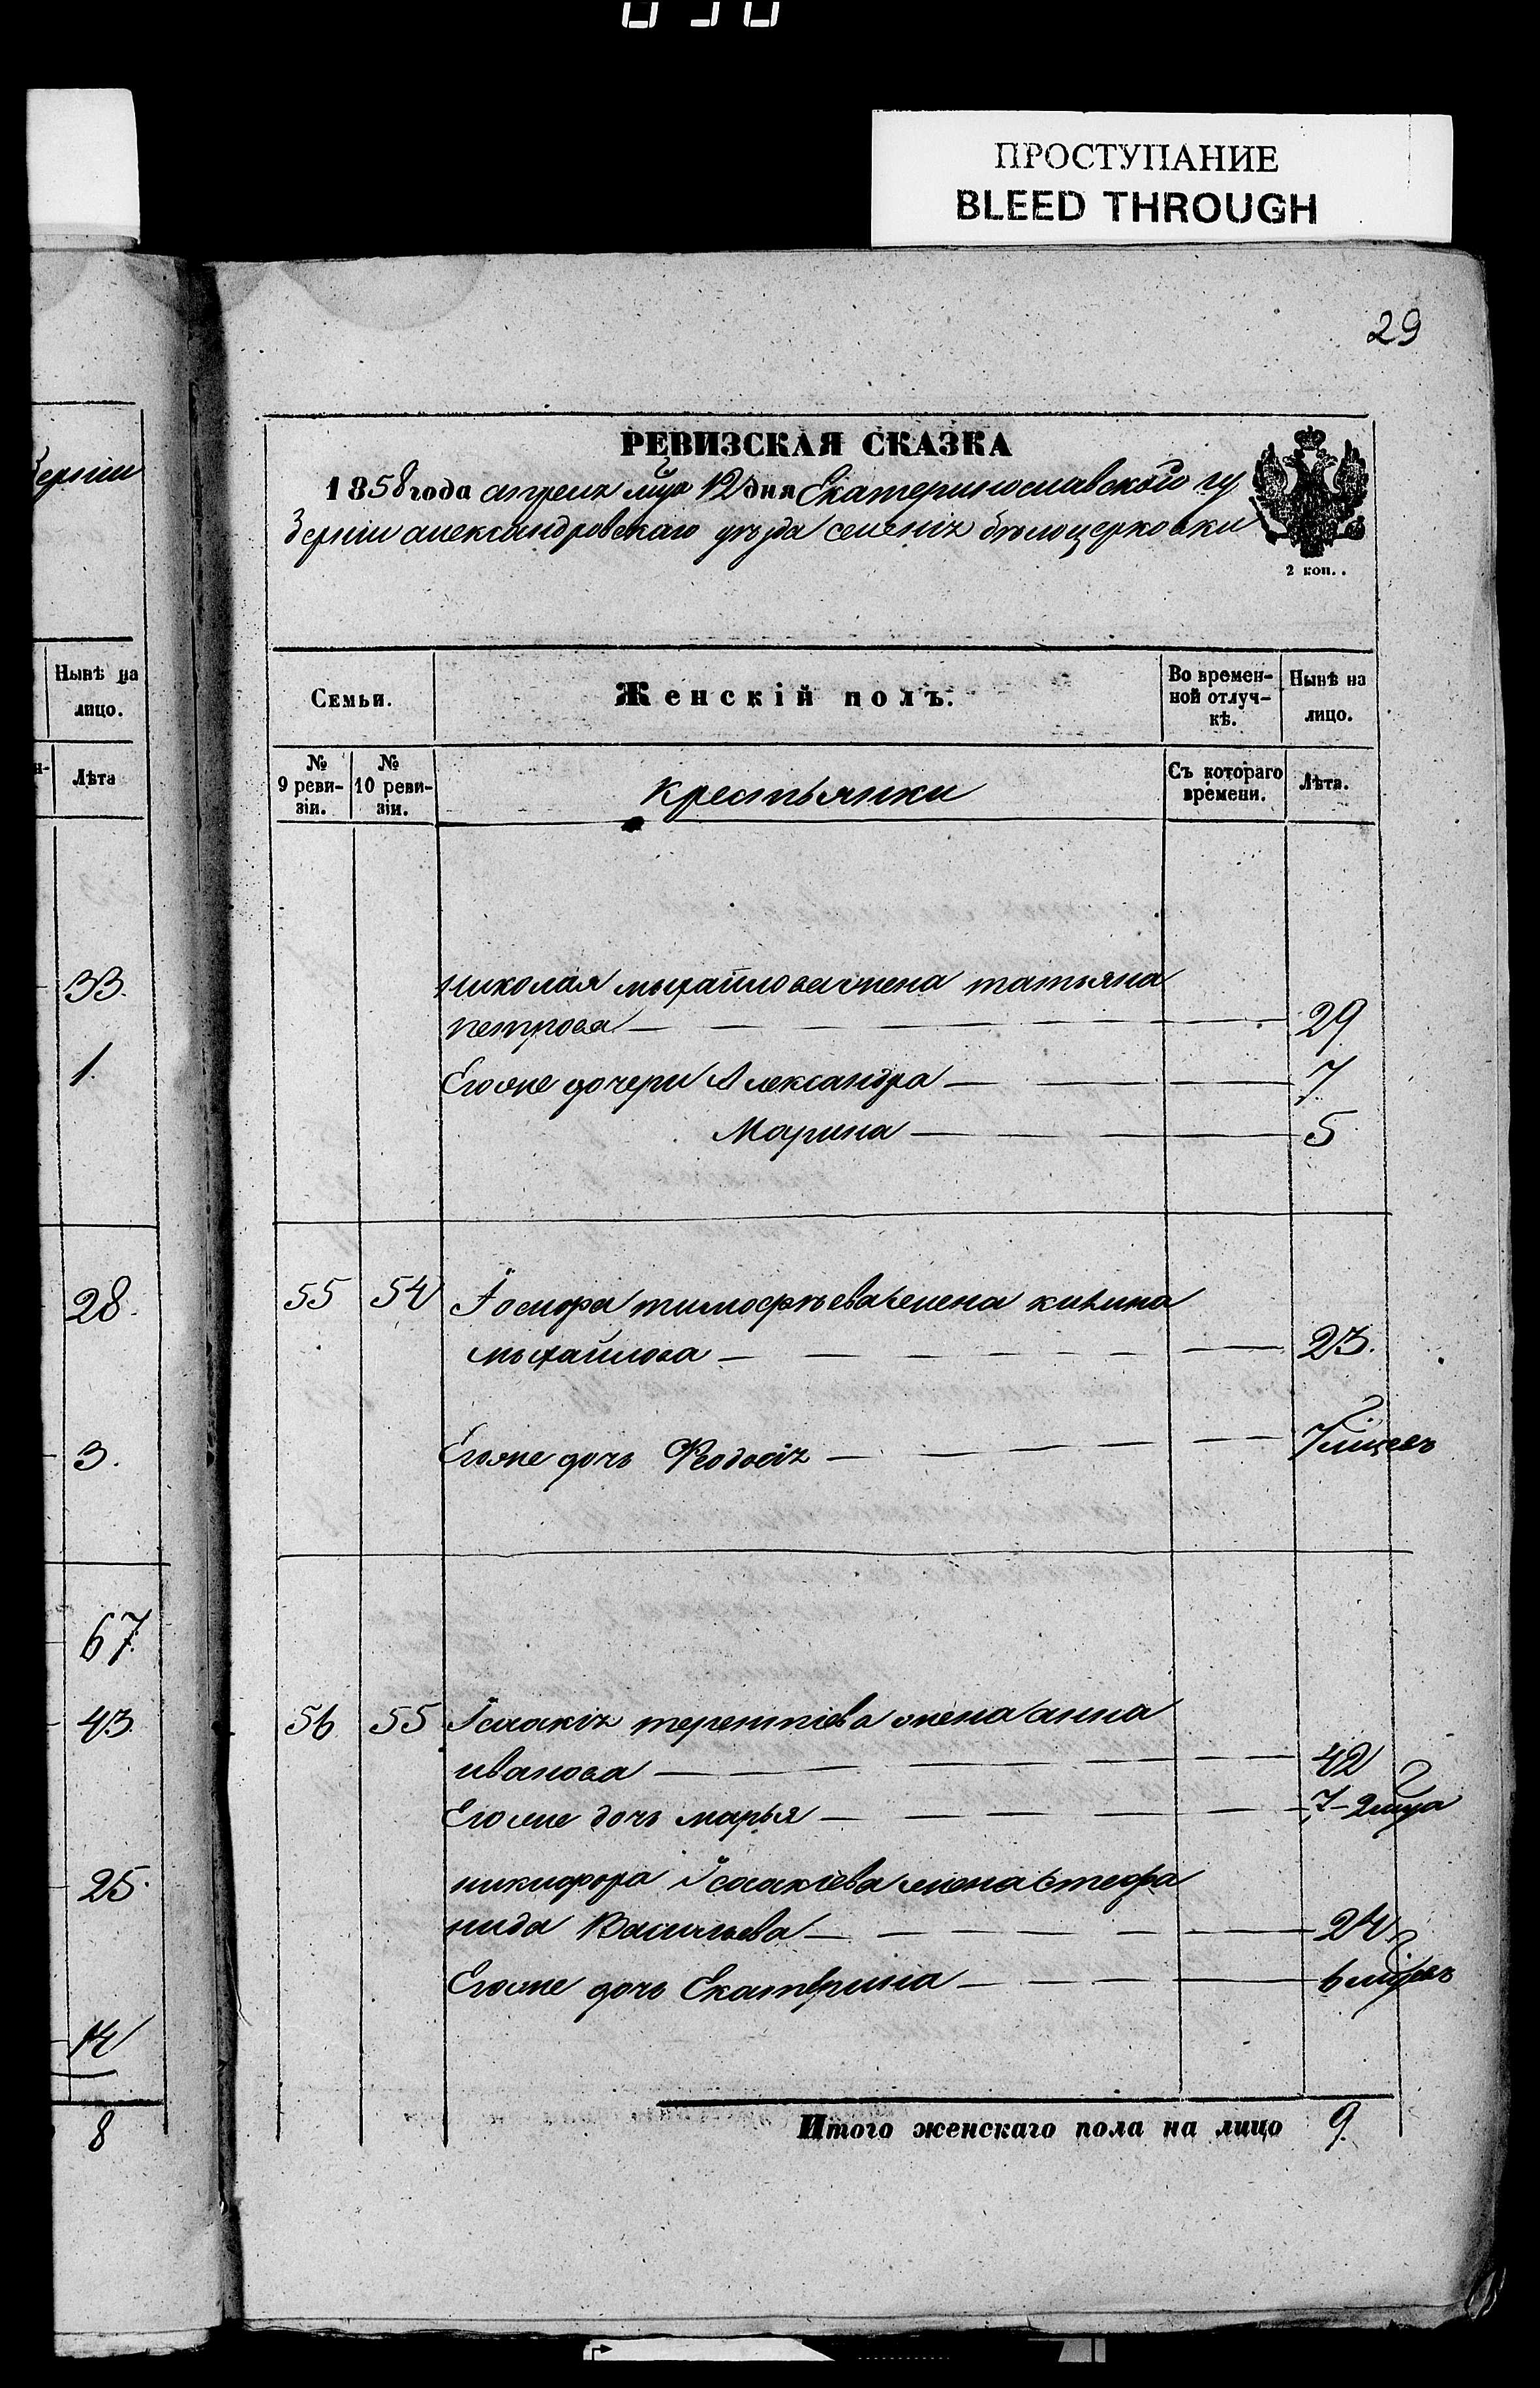 ПРОСТУПАНИЕ
BLEED THROUGH
29
РЕВИЗСКАЯ СКАЗКА
1858 года апреля мца 12 дня Екатеринославской гу
берніи александровскаго уѣзда селенія бѣлоцерковки
2 коп.
Нынѣ на лицо.
Лѣта
33.
1.
28.
3.
67
43
25.
14
8
Семьи.
Женскій полъ.
Во времен-
ной отлуч-
кѣ.
Нынѣ на
лицо.
№
9 реви-
зіи.
№
10 реви-
зіи.
крестьянки
Съ котораго
времени.
Лѣта.
николая михайлова жена татьяна
петрова 29
Егоже дочери Александра 7
Марина 5
55 54 тимофѣева жена
михайлова 23.
Егоже дочь Феодосія 7 мцевъ
56 55 Ісаакія терентіева жена анна
иванова 42
Егоже дочь марья 7-2 мца
никифора Ісаакіева жена Стефа
нида Васильева 24
Егоже дочь Екатерина 6 мцевъ
Итого женскаго пола на лицо 9.